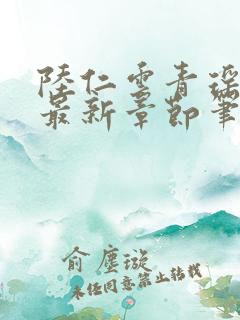 陸仁雲青瑤
最新章節筆
俞塵璇
未经同意禁止转载